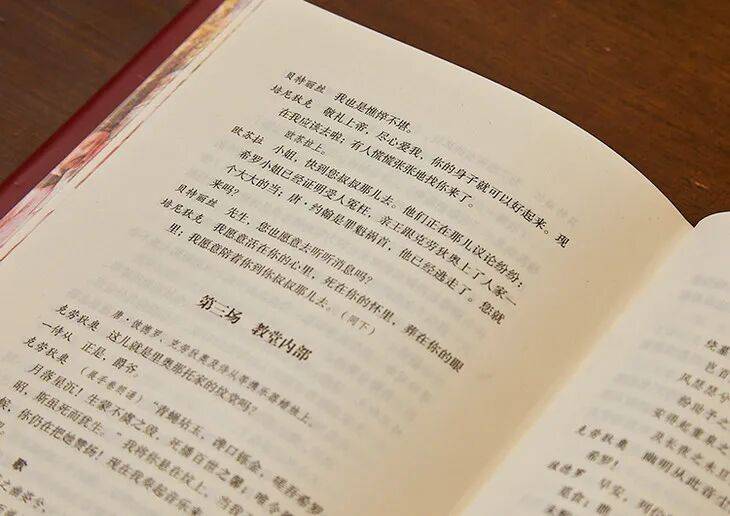 贝特丽丝 我也是憔悴不堪。
培尼狄克 敬礼上帝，尽心爱我，你的身子就可以好起来。现
在我应该去啦；有人慌慌张张地找你来了。
欧苏拉上。
欧苏拉 小姐，快到您叔叔那儿去。他们正在那儿议论纷纷：
希罗小姐已经证明受人冤枉，亲王跟克劳狄奥上了人家一
个大大的当；唐·约翰是罪魁祸首，他已经逃走了。您就
来吗？
贝特丽丝 先生，您也愿意去听听消息吗？
培尼狄克 我愿意活在你的心里，死在你的怀里，葬在你的眼
里；我愿意陪着你到你叔叔那儿去。（同下）
第三场 教堂内部
唐·彼德罗、克劳狄奥及侍从等携乐器蜡烛上。
克劳狄奥 这儿就是里奥那托家的坟堂吗？
一侍从 正是，爵爷。
克劳狄奥 （展手卷朗诵）“青蝇玷玉，谗口铄金，嗟吾希罗
月落星沉！生蒙不虞之毁，死播百世之馨；
昭，斯虽死而犹生。”我将你悬在坟上，当我
候，你仍在把她赞扬！现在奏起音乐来
歌
绕墓
岂首
风瑟瑟兮
给助予之
安得起重
及长夜之未
克劳狄奥 幽明从此音
希罗！
彼德罗 早安，列位
觅食；瞧